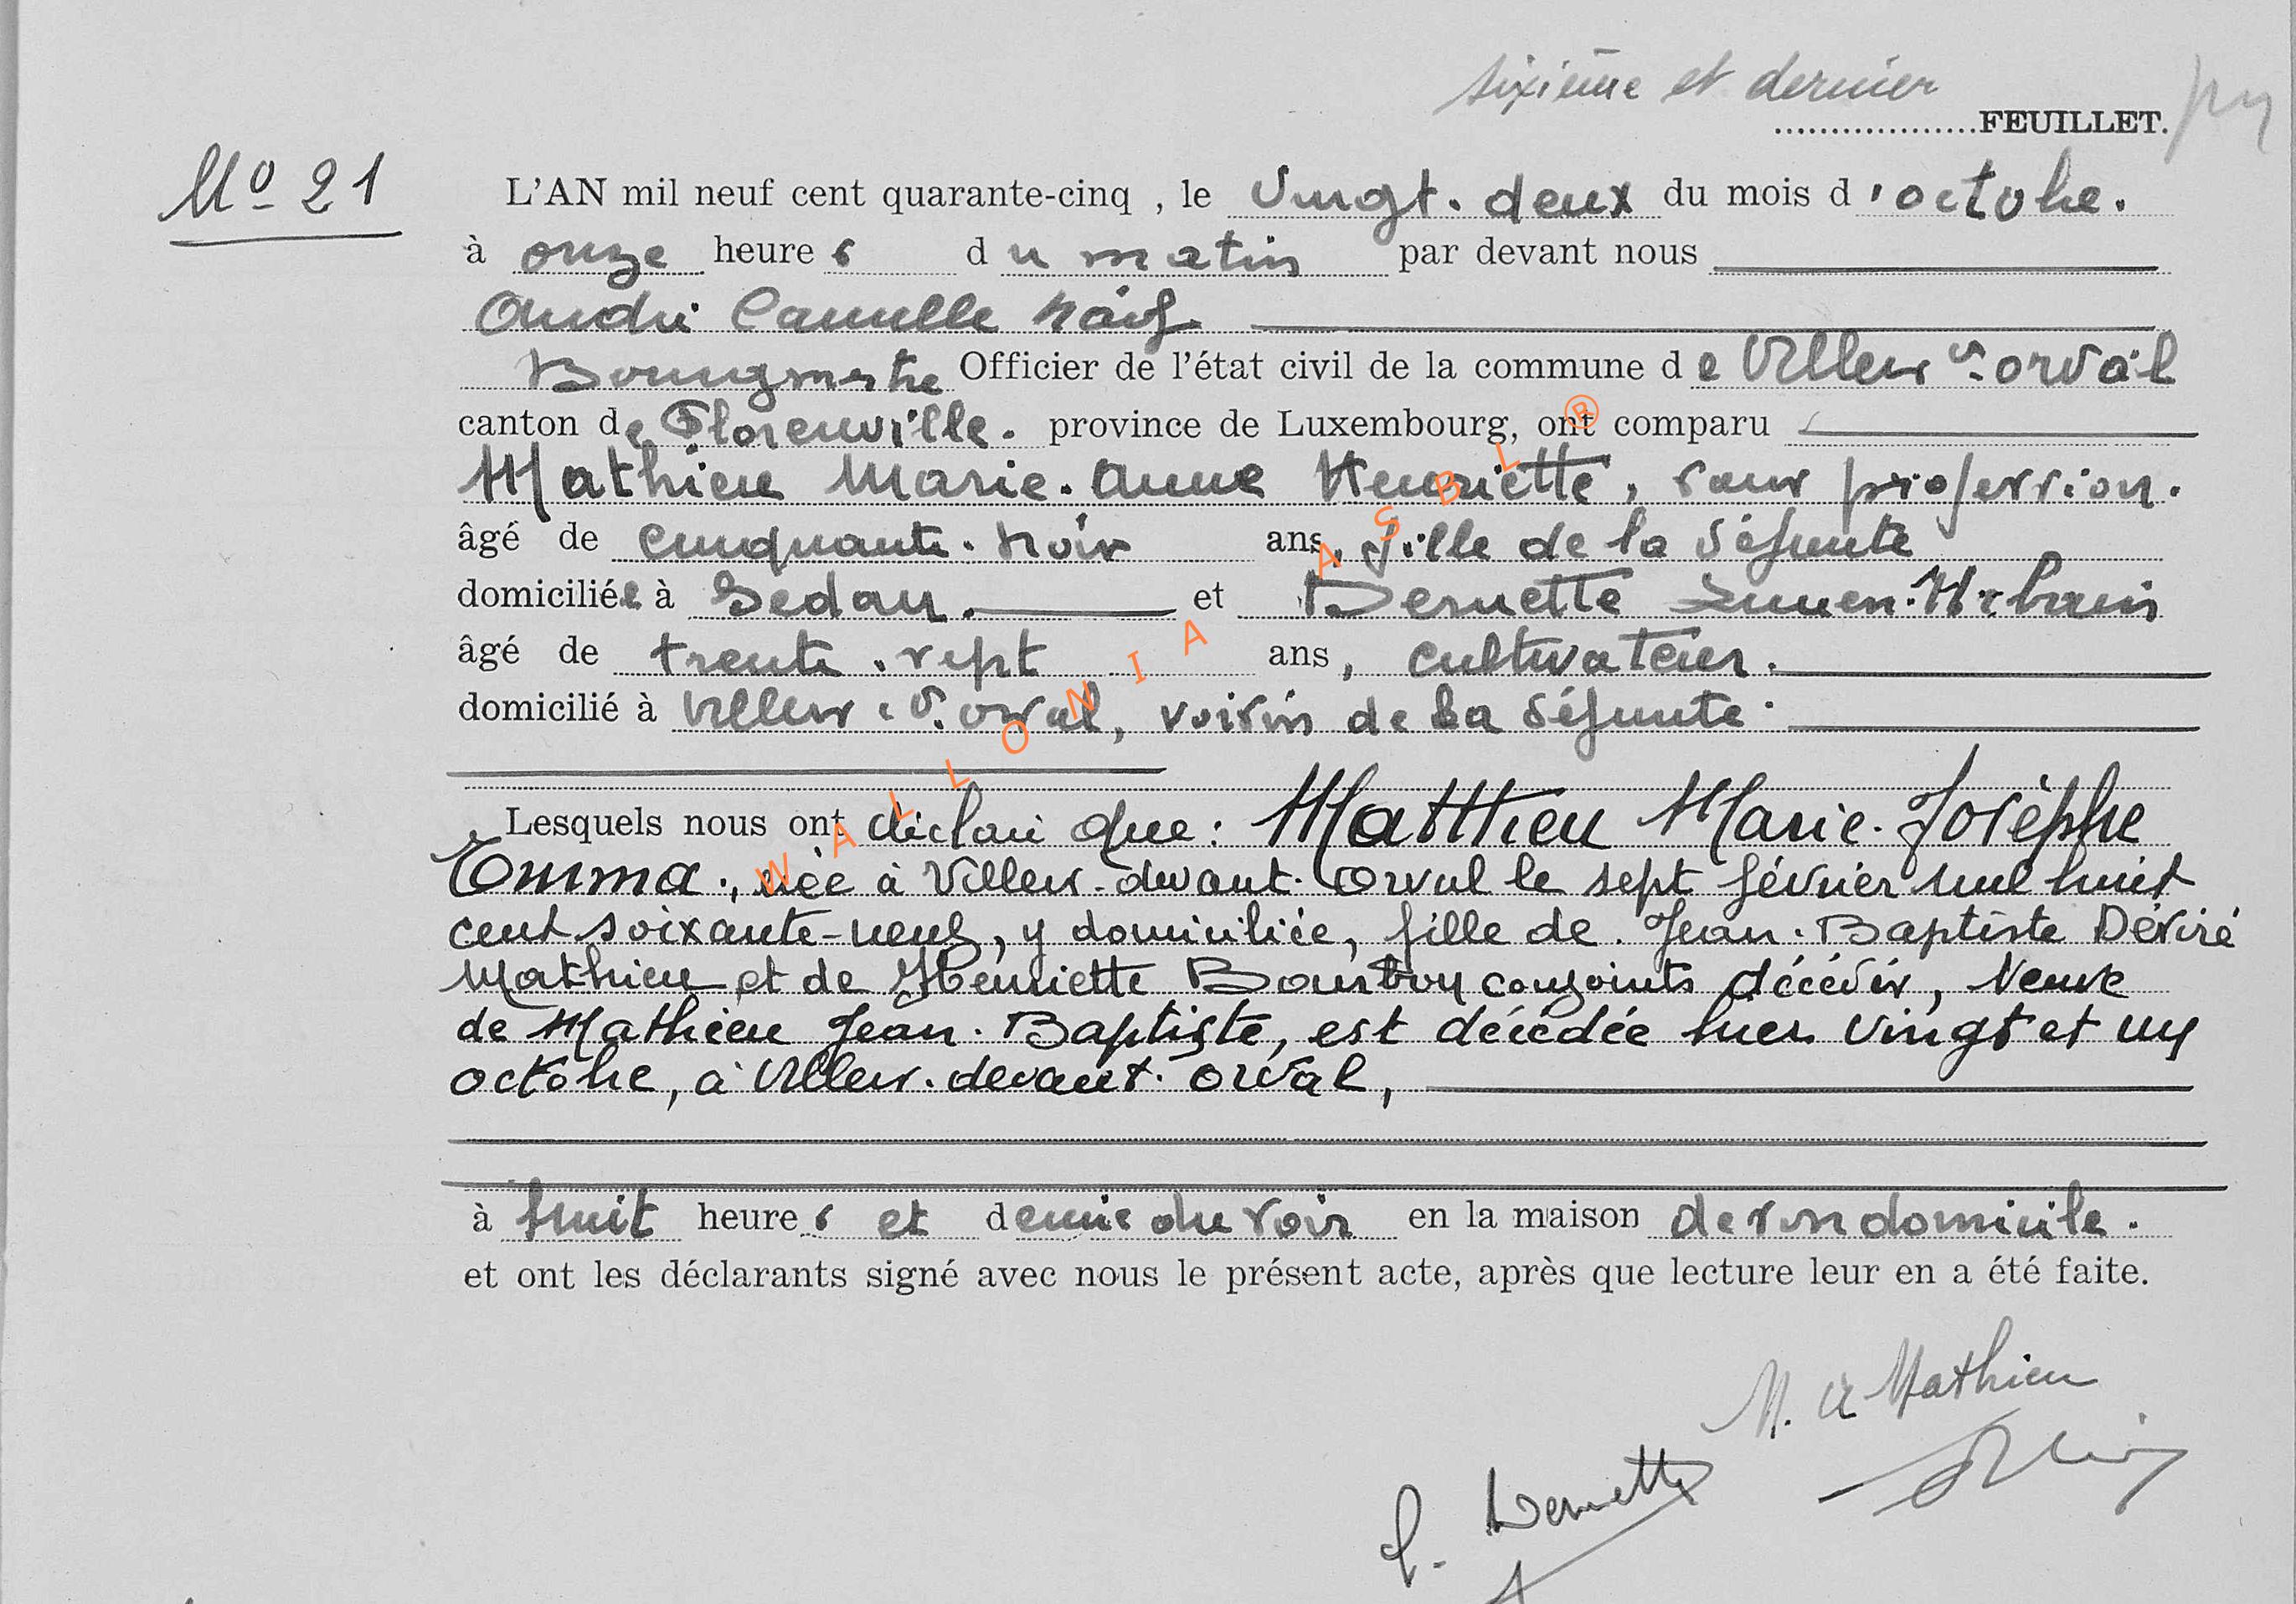 sixième et dernier
FEUILLET.
No 21
L'AN mil neuf cent quarante-cinq , le Vingt-deux du mois d'octobre.
à onze heures du matin par devant nous
André Camille
Bourgmestre Officier de l'état civil de la commune de Villers d. orval
canton de Florenville. province de Luxembourg, ont comparu
Mathieu Marie-Anne Henriette, sans profession.
âgé de cinquante-trois ans, fille de la défunte
domiciliée à Sedan. et Dernette Urbain
âgé de trente-sept ans, cultivateur.
domicilié à Villers d. orval, voisin de la défunte.
Lesquels nous ont déclaré que: Matthieu Marie-Josèphe
Emma, née à Villers-devant-Orval le sept février mil huit
cent soixante-neuf, y domiciliée, fille de Jean-Baptiste Désiré
Mathieu et de Henriette conjoints décédés, Veuve
de Mathieu Jean-Baptiste, est décédée hier vingt et un
octobre, à Villers-devant-orval,
à huit heures et demie du soir en la maison de son domicile.
et ont les déclarants signé avec nous le présent acte, après que lecture leur en a été faite.
M. A Mathieu
Dernette
WALLONIA ASBL ®